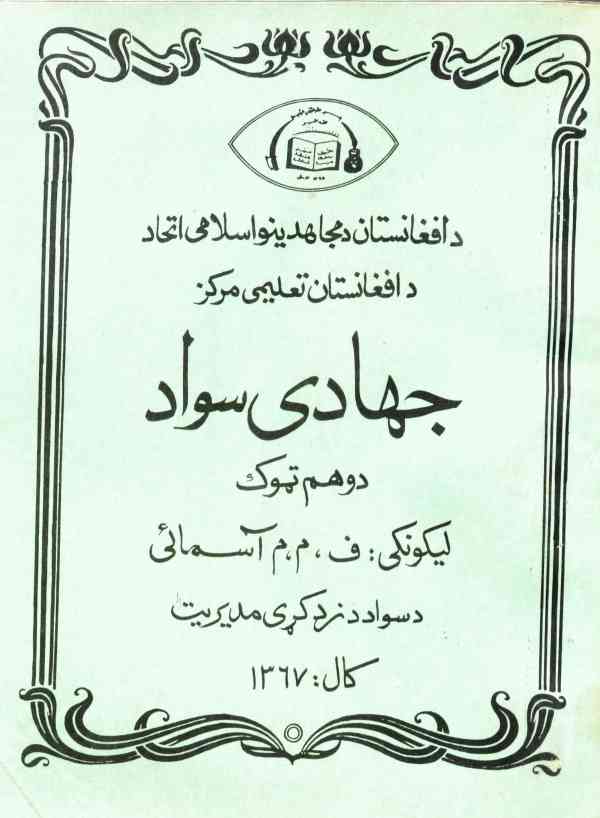 د افغانستان د مجاهدینو اسلامی اتحاد
د افغانستان تعلیمی مرکز
جهادی سواد
دوهم ټوک
لیکونکی: ف ، م، م آسمائی
د سواد د زده کړی مدیریت
کال: ۱۳۶۷